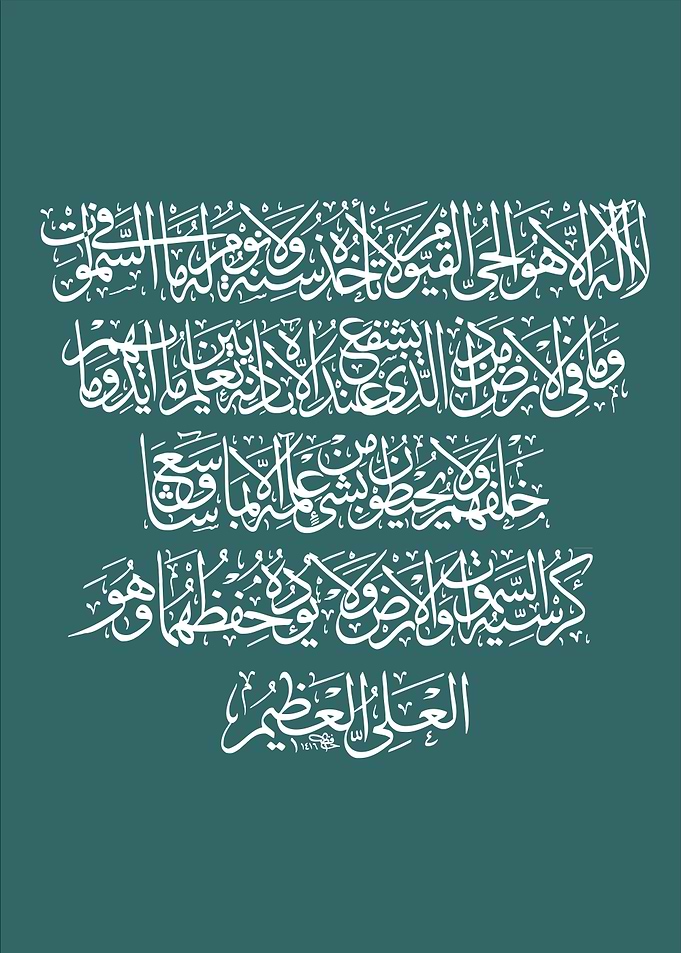 لَا إِلَٰهَ إِلَّا هُوَ الْحَيُّ الْقَيُّومُ لَا تَأْخُذُهُ سِنَةٌ وَلَا نَوْمٌ لَهُ مَا فِي السَّمٰوَاتِ
وَمَا فِي الْأَرْضِ مَنْ ذَا الَّذِي يَشْفَعُ عِنْدَهُ إِلَّا بِإِذْنِهِ يَعْلَمُ مَا بَيْنَ أَيْدِيهِمْ وَمَا
خَلْفَهُمْ وَلَا يُحِيطُونَ بِشَيْءٍ مِنْ عِلْمِهِ إِلَّا بِمَا شَاءَ وَسِعَ
كُرْسِيُّهُ السَّمٰوَاتِ وَالْأَرْضَ وَلَا يَؤُدُهُ حِفْظُهُمَا وَهُوَ
الْعَلِيُّ الْعَظِيمُ
١٤١٦